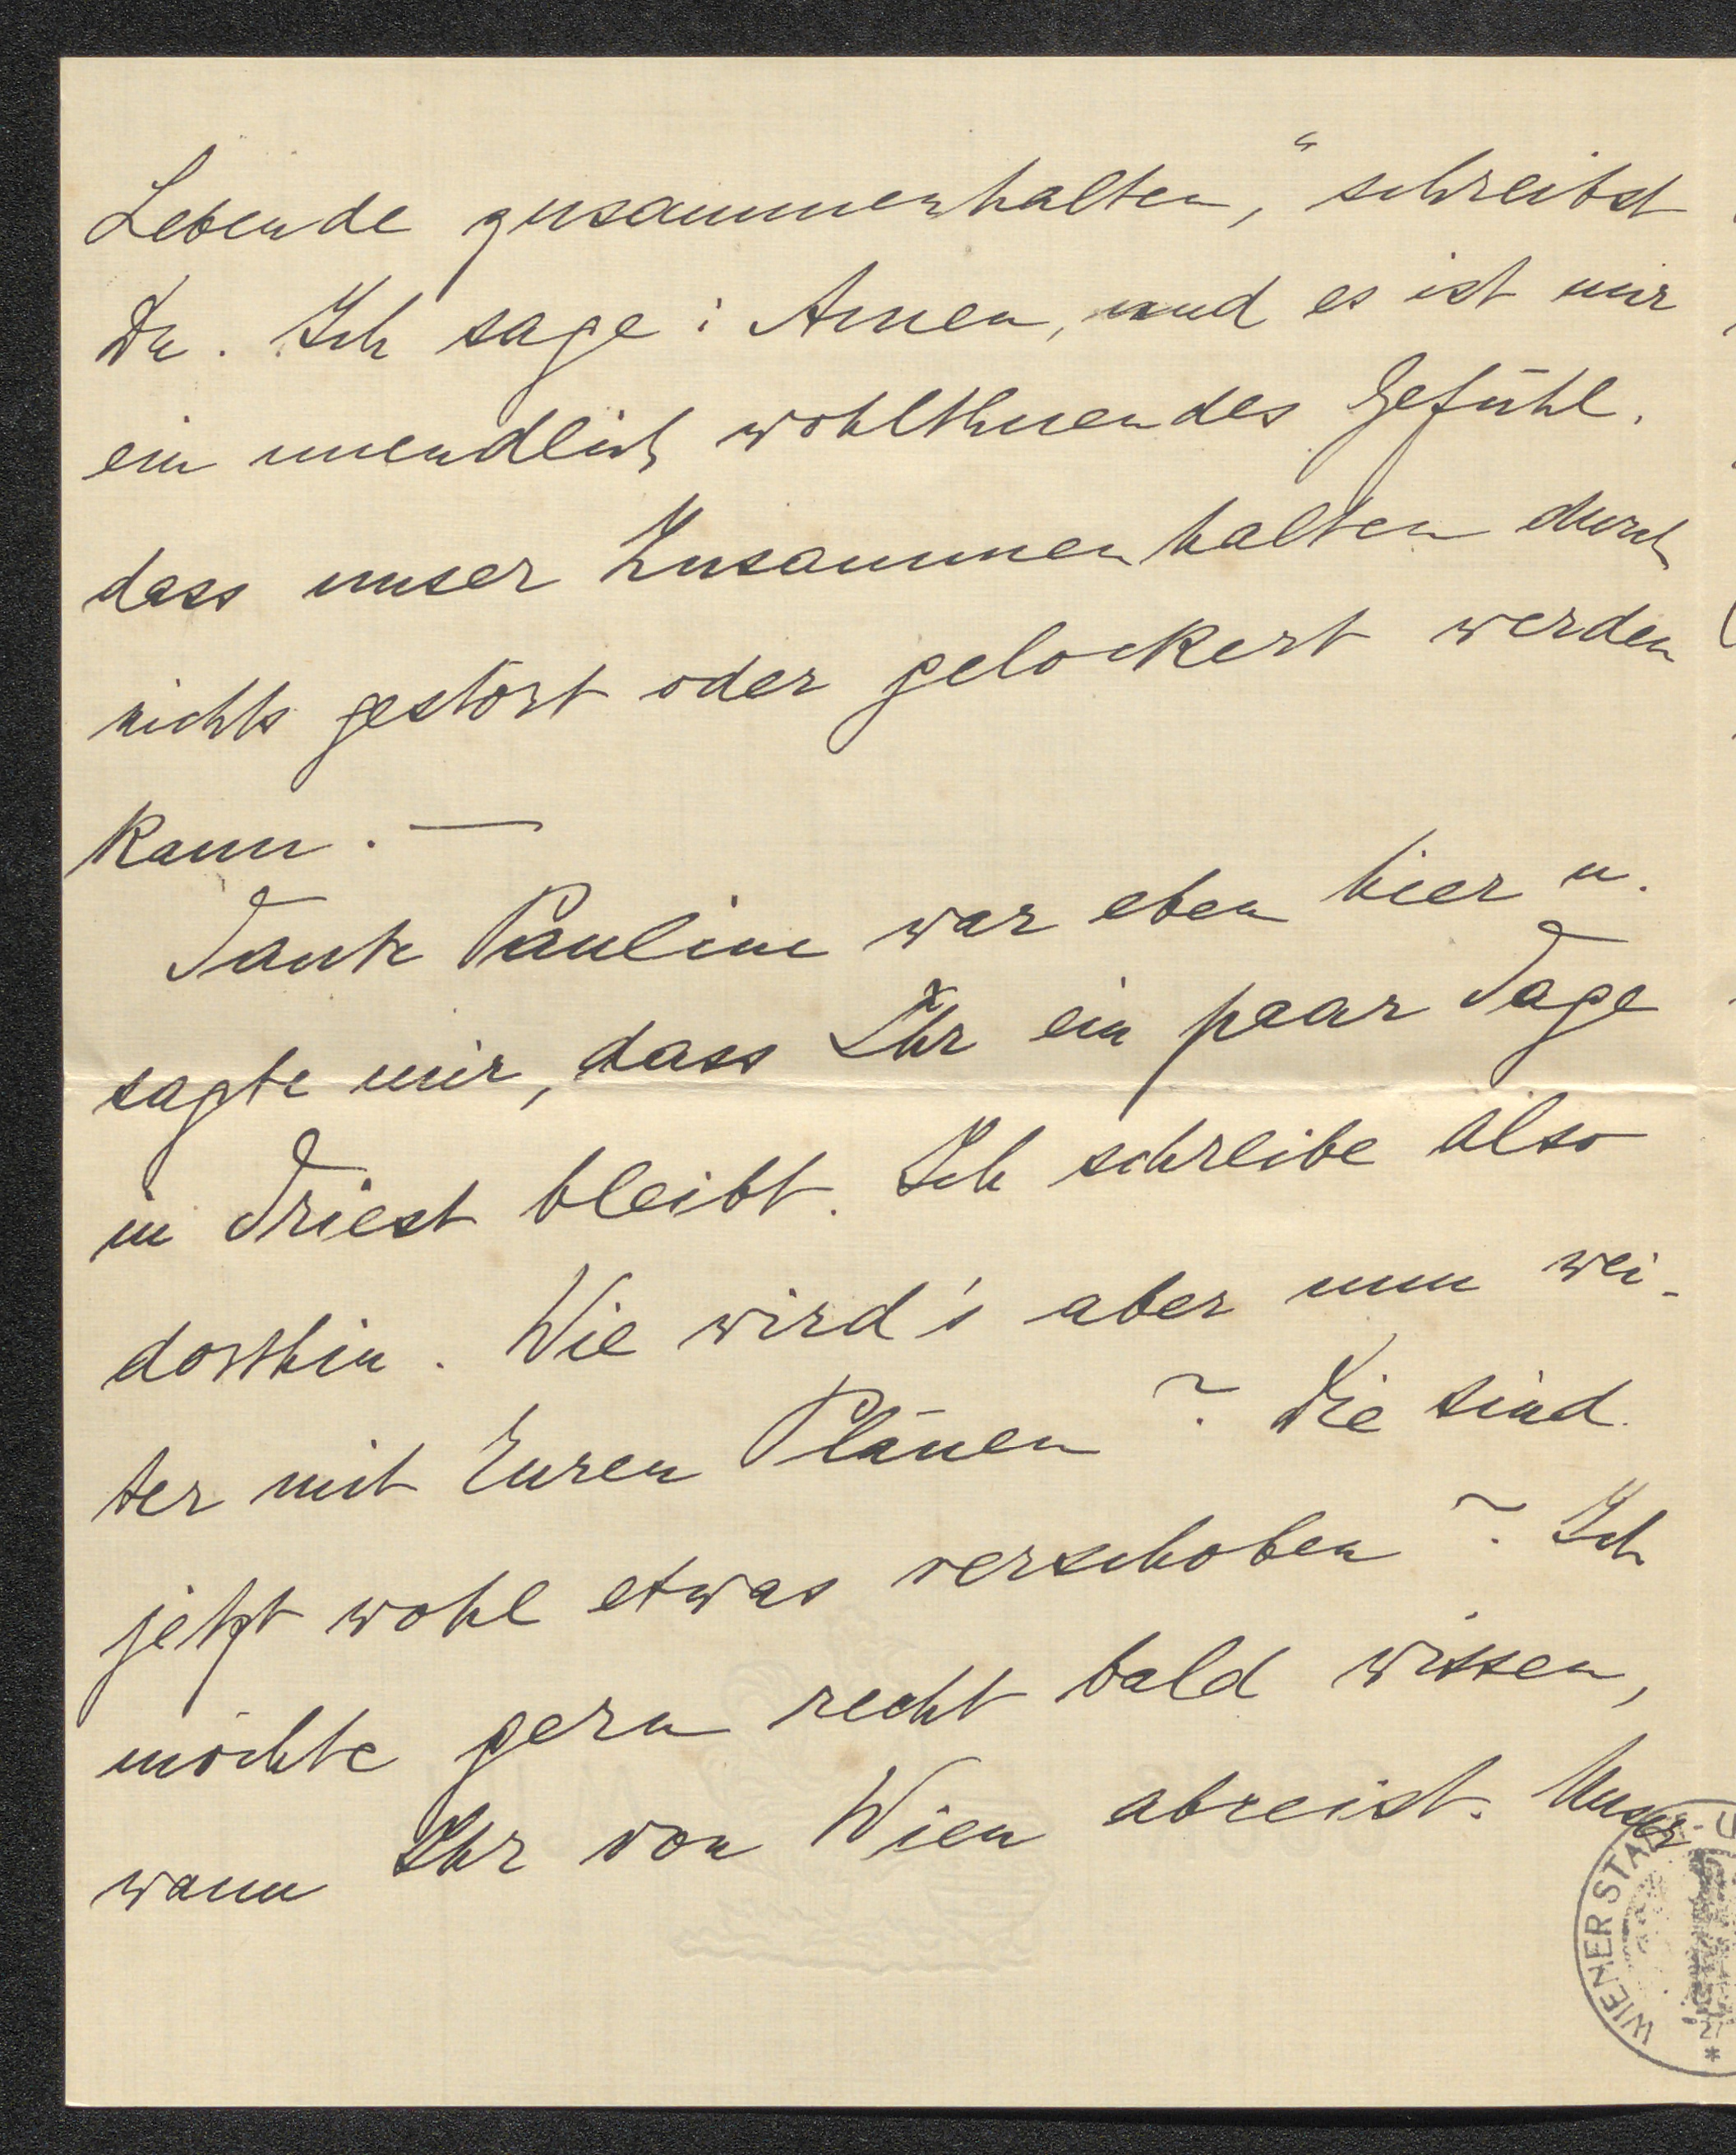 Lebende zusammenhalten,“ schreibst
Du. Ich sage: Amen, und es ist mir
ein unendlich wohlthuendes Gefühl,
dass unser Zusammenhalten durch
nichts gestört oder gelockert werden
kann. —
Tante Pauline war eben hier u.
sagte mir, dass Ihr ein paar Tage
in Triest bleibt. Ich schreibe also
dorthin. Wie wird's aber nun wei-
ter mit Euren Plänen? Die sind
jetzt wohl etwas verschoben? Ich
möchte gern recht bald wissen,
wann Ihr von Wien abreist. Unser
WIENER STADT-